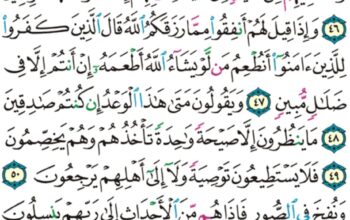 ٤٦ وَإِذَا قِيلَ لَهُمْ أَنفِقُوا۟ مِمَّا رَزَقَكُمُ ٱللَّهُ قَالَ ٱلَّذِينَ كَفَرُوا۟
لِلَّذِينَ ءَامَنُوٓا۟ أَنُطْعِمُ مَن لَّوْ يَشَآءُ ٱللَّهُ أَطْعَمَهُۥٓ إِنْ أَنتُمْ إِلَّا فِى
ضَلَٰلٍ مُّبِينٍ ٤٧ وَيَقُولُونَ مَتَىٰ هَٰذَا ٱلْوَعْدُ إِن كُنتُمْ صَٰدِقِينَ
٤٨ مَا يَنظُرُونَ إِلَّا صَيْحَةً وَٰحِدَةً تَأْخُذُهُمْ وَهُمْ يَخِصِّمُونَ
٤٩ فَلَا يَسْتَطِيعُونَ تَوْصِيَةً وَلَآ إِلَىٰٓ أَهْلِهِمْ يَرْجِعُونَ ٥٠
وَنُفِخَ فِى ٱلصُّورِ فَإِذَا هُم مِّنَ ٱلْأَجْدَاثِ إِلَىٰ رَبِّهِمْ يَنسِلُونَ